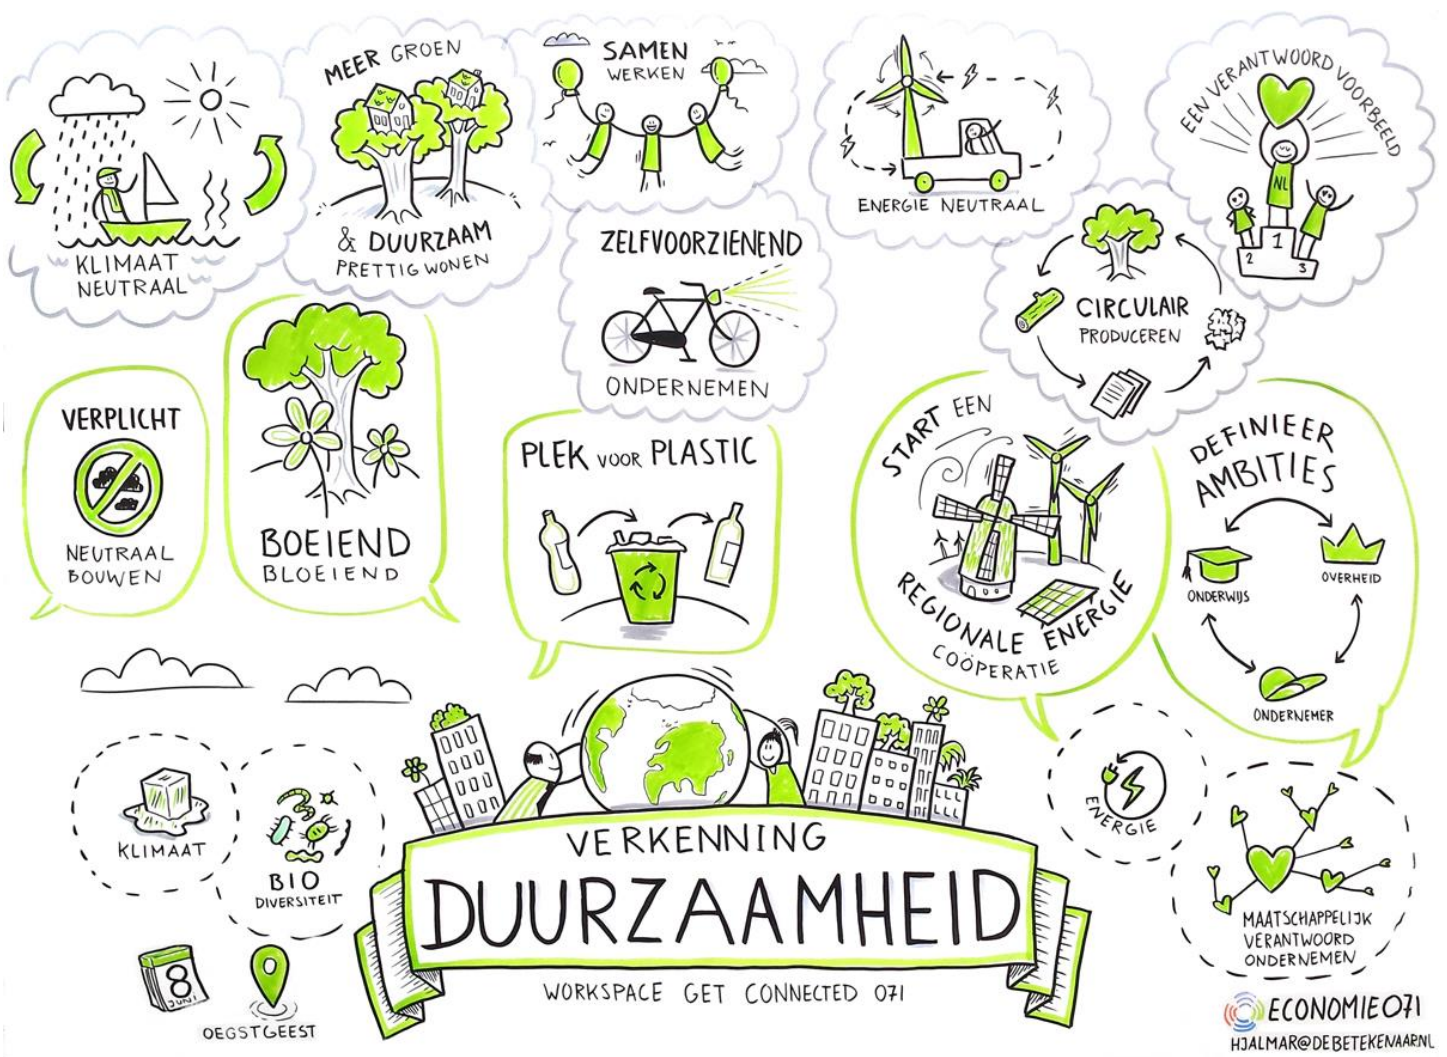 KLIMAAT
NEUTRAAL
MEER GROEN
& DUURZAAM
PRETTIG WONEN
SAMEN
WERKEN
ENERGIE NEUTRAAL
EEN VERANTWOORD VOORBEELD
NL
1
2
3
ZELFVOORZIENEND
ONDERNEMEN
CIRCULAIR
PRODUCEREN
VERPLICHT
NEUTRAAL
BOUWEN
BOEIEND
BLOEIEND
PLEK VOOR PLASTIC
START EEN
REGIONALE ENERGIE
COÖPERATIE
DEFINIEER
AMBITIES
ONDERWIJS
OVERHEID
ONDERNEMER
KLIMAAT
BIO
DIVERSITEIT
ENERGIE
MAATSCHAPPELIJK
VERANTWOORD
ONDERNEMEN
VERKENNING
DUURZAAMHEID
WORKSPACE GET CONNECTED 071
8
JUNI
OEGSTGEEST
ECONOMIE071
HJALMAR@DEBETEKENAAR.NL